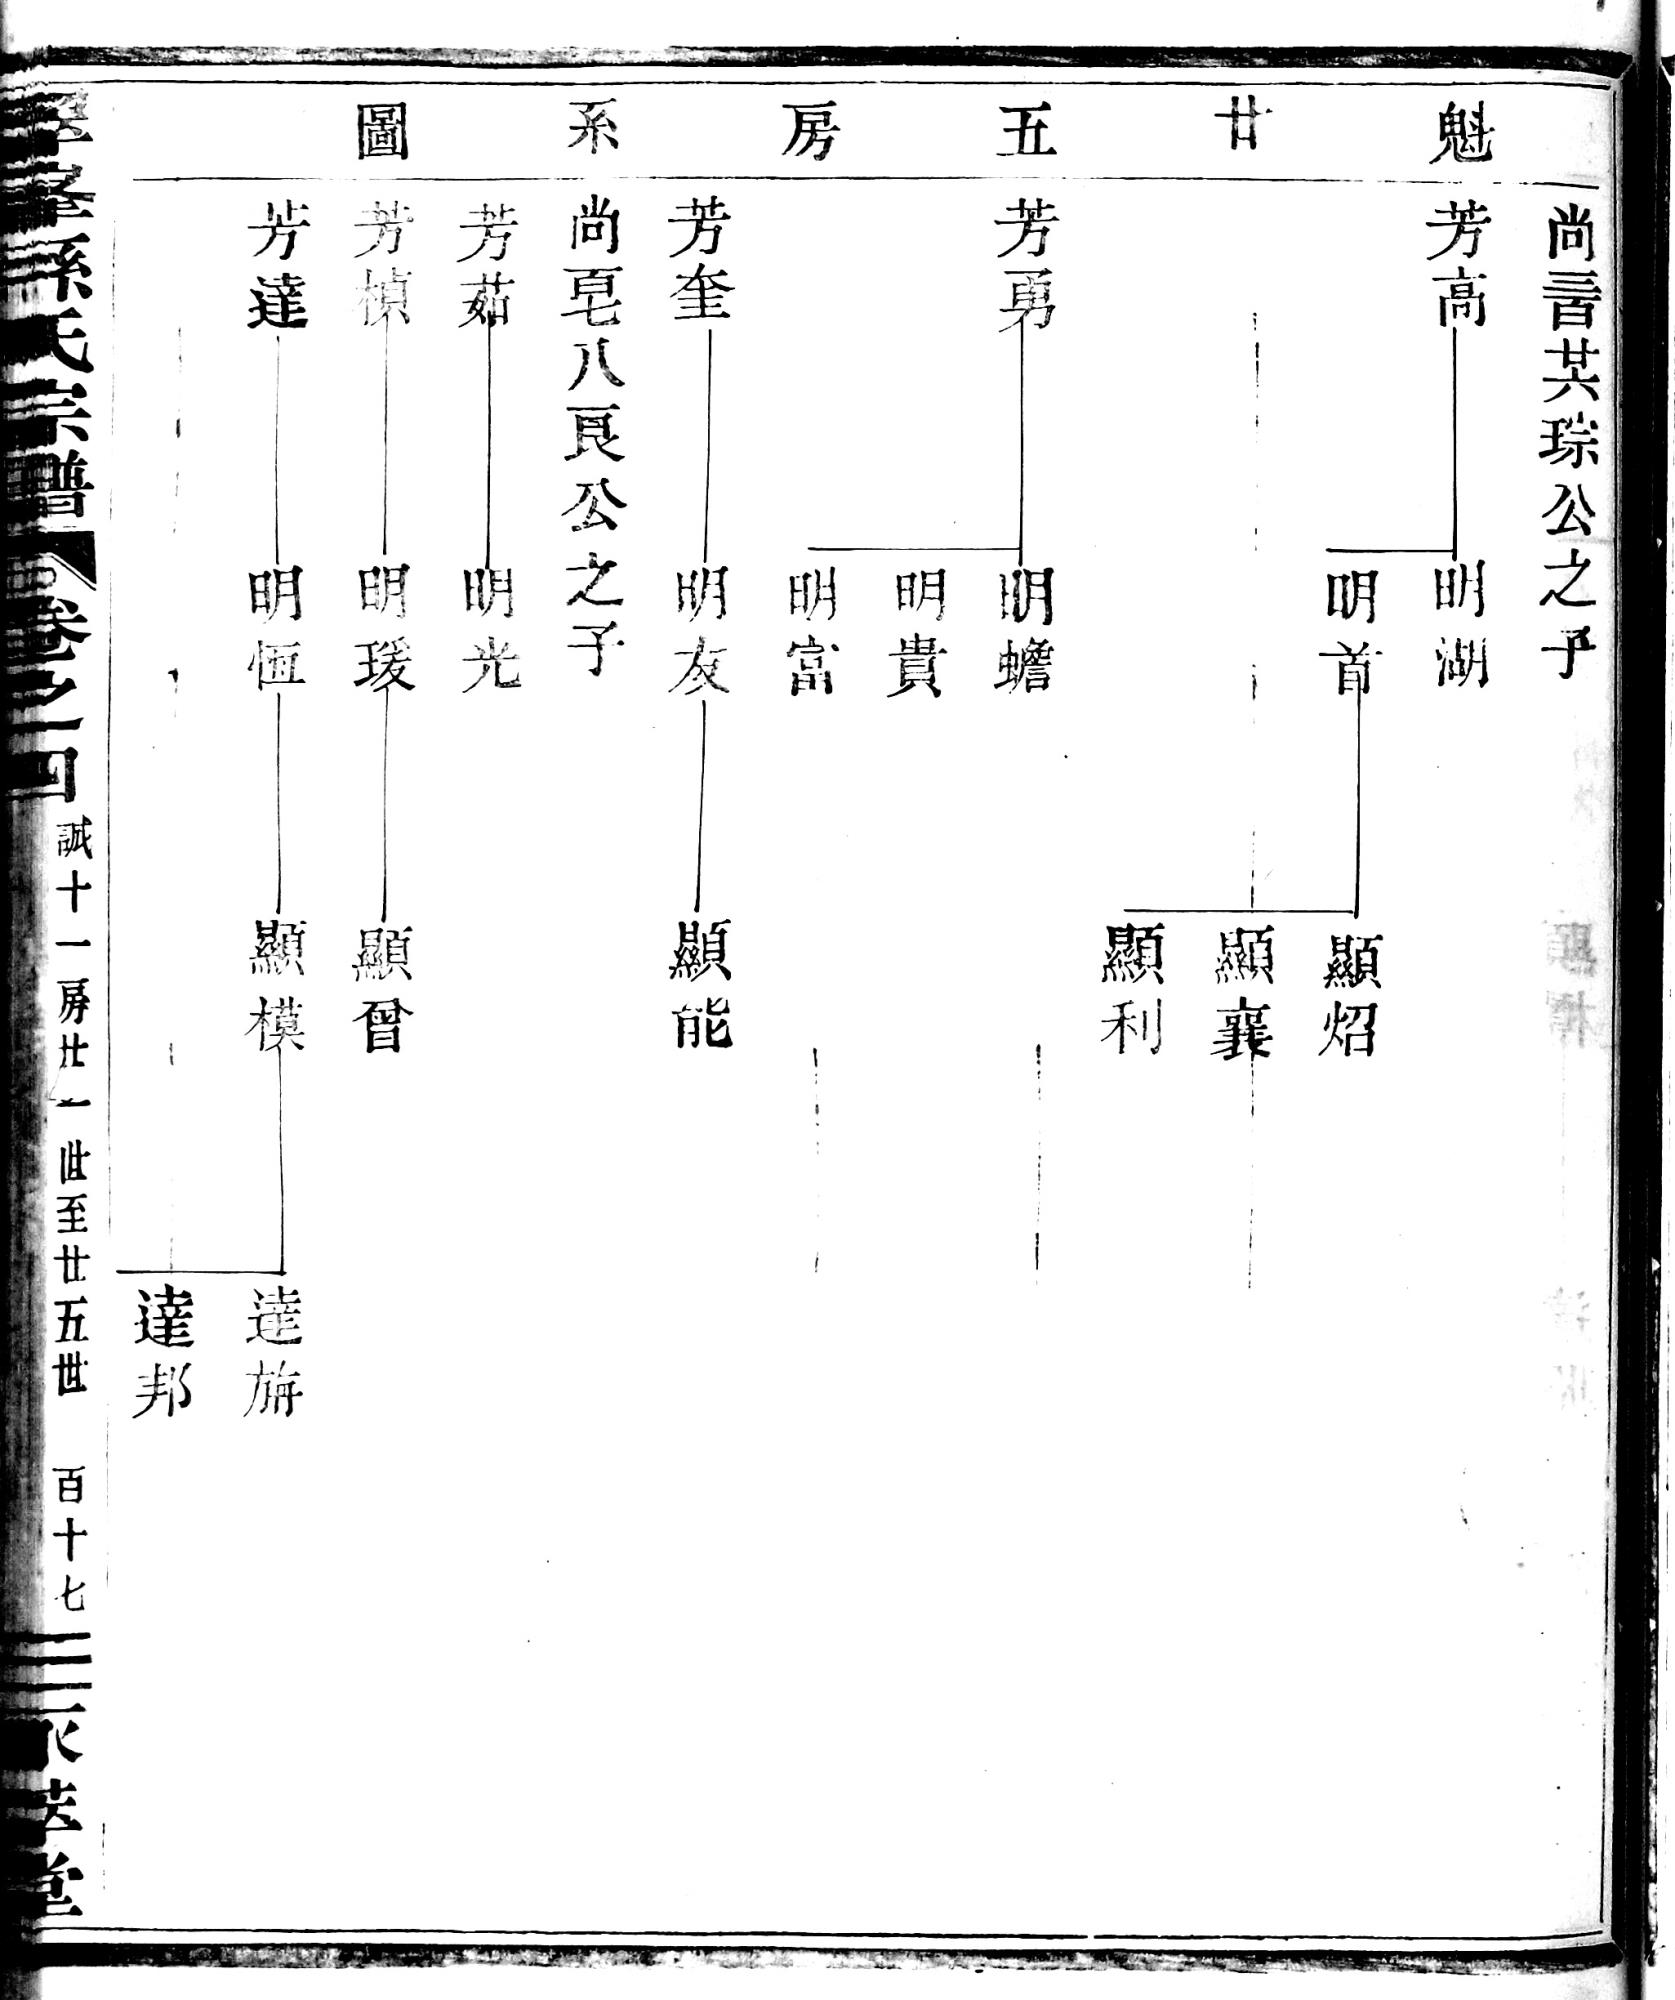 魁廿五房系圖
尚晋其琮公之子
芳高
明湖
明首
顯炤
顯襄
顯利
芳勇
明蟾
明貴
明富
芳奎
明友
顯能
尚皂八良公之子
芳茹
明光
芳楨
明瑗
顯曾
芳達
明恒
顯模
達旃
達邦
孫氏宗譜
卷之四
誠十一房廿一世至廿五世
百十七
萃堂